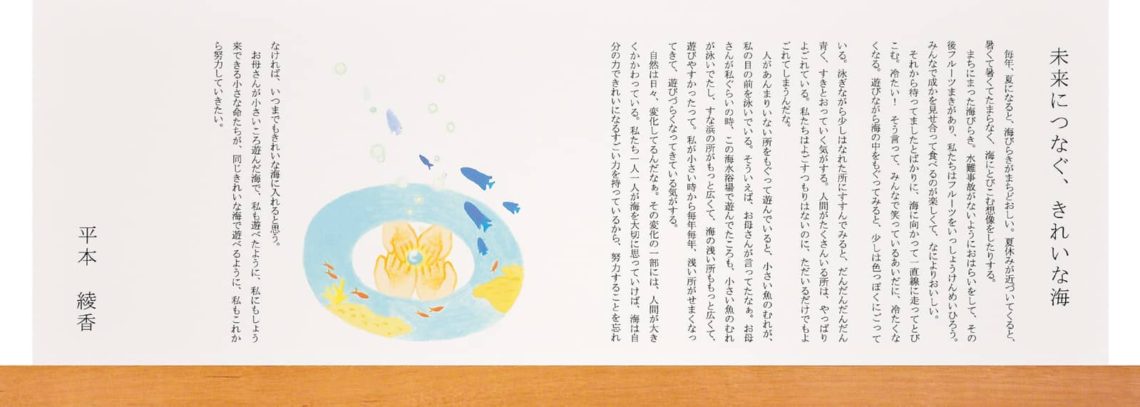 未来につなぐ、きれいな海
毎年、夏になると、海びらきがまちどおしい。夏休みが近づいてくると、
暑くて暑くてたまらなく、海にとびこむ想像をしたりする。
まちにまった海びらき。水難事故がないようにおはらいをして、その
後フルーツまきがあり、私たちはフルーツをいっしょうけんめいひろう。
みんなで成かを見せ合って食べるのが楽しくて、なによりおいしい。
それから待ってましたとばかりに、海に向かって一直線に走ってとび
こむ。冷たい！　そう言って、みんなで笑っているあいだに、冷たくな
くなる。遊びながら海の中をもぐってみると、少しは色っぽくにごって
いる。泳ぎながら少しはなれた所にすすんでみると、だんだんだんだん
青く、すきとおっていく気がする。人間がたくさんいる所は、やっぱり
よごれている。私たちはよごすつもりはないのに、ただいるだけでもよ
ごれてしまうんだな。
人があんまりいない所をもぐって遊んでいると、小さい魚のむれが、
私の目の前を泳いでいる。そういえば、お母さんが言ってたなぁ。お母
さんが私ぐらいの時、この海水浴場で遊んでたころも、小さい魚のむれ
が泳いでたし、すな浜の所がもっと広くて、海の浅い所ももっと広くて、
遊びやすかったって。私が小さい時から毎年毎年、浅い所がせまくなっ
てきて、遊びづらくなってきている気がする。
自然は日々、変化してるんだなぁ。その変化の一部には、人間が大き
くかかわっている。私たち一人一人が海を大切に思っていけば、海は自
分の力できれいになるすごい力を持っているから、努力することを忘れ
なければ、いつまでもきれいな海に入れると思う。
お母さんが小さいころ遊んだ海で、私も遊べたように、私にもしょう
来できる小さな命たちが、同じきれいな海で遊べるように、私もこれか
ら努力していきたい。
平本　綾香